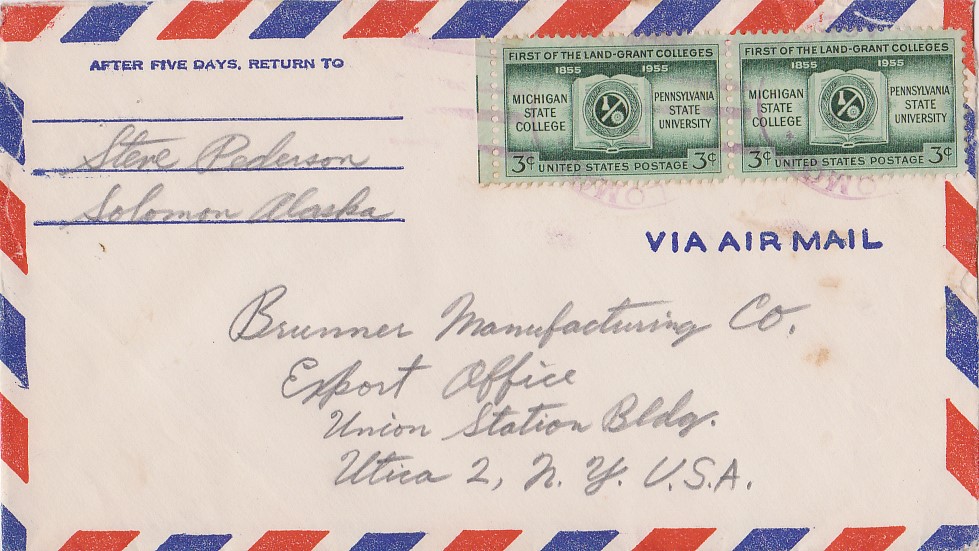 AFTER FIVE DAYS, RETURN TO
Steve Pederson
Solomon Alaska
FIRST OF THE LAND-GRANT COLLEGES
1855 1955
MICHIGAN STATE COLLEGE
PENNSYLVANIA STATE UNIVERSITY
3¢ UNITED STATES POSTAGE 3¢
FIRST OF THE LAND-GRANT COLLEGES
1855 1955
MICHIGAN STATE COLLEGE
PENNSYLVANIA STATE UNIVERSITY
3¢ UNITED STATES POSTAGE 3¢
VIA AIR MAIL
Brunner Manufacturing Co.
Export Office
Union Station Bldg.
Utica 2, N. Y. U.S.A.